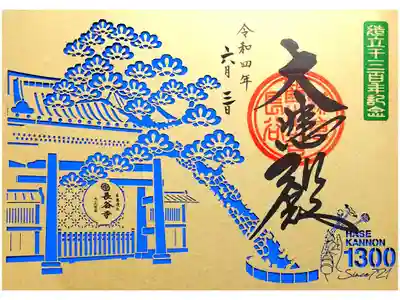 造立千三百年記念
大悲殿
令和四年
六月三日
長谷寺
HASE
KANNON
1300
Since 721